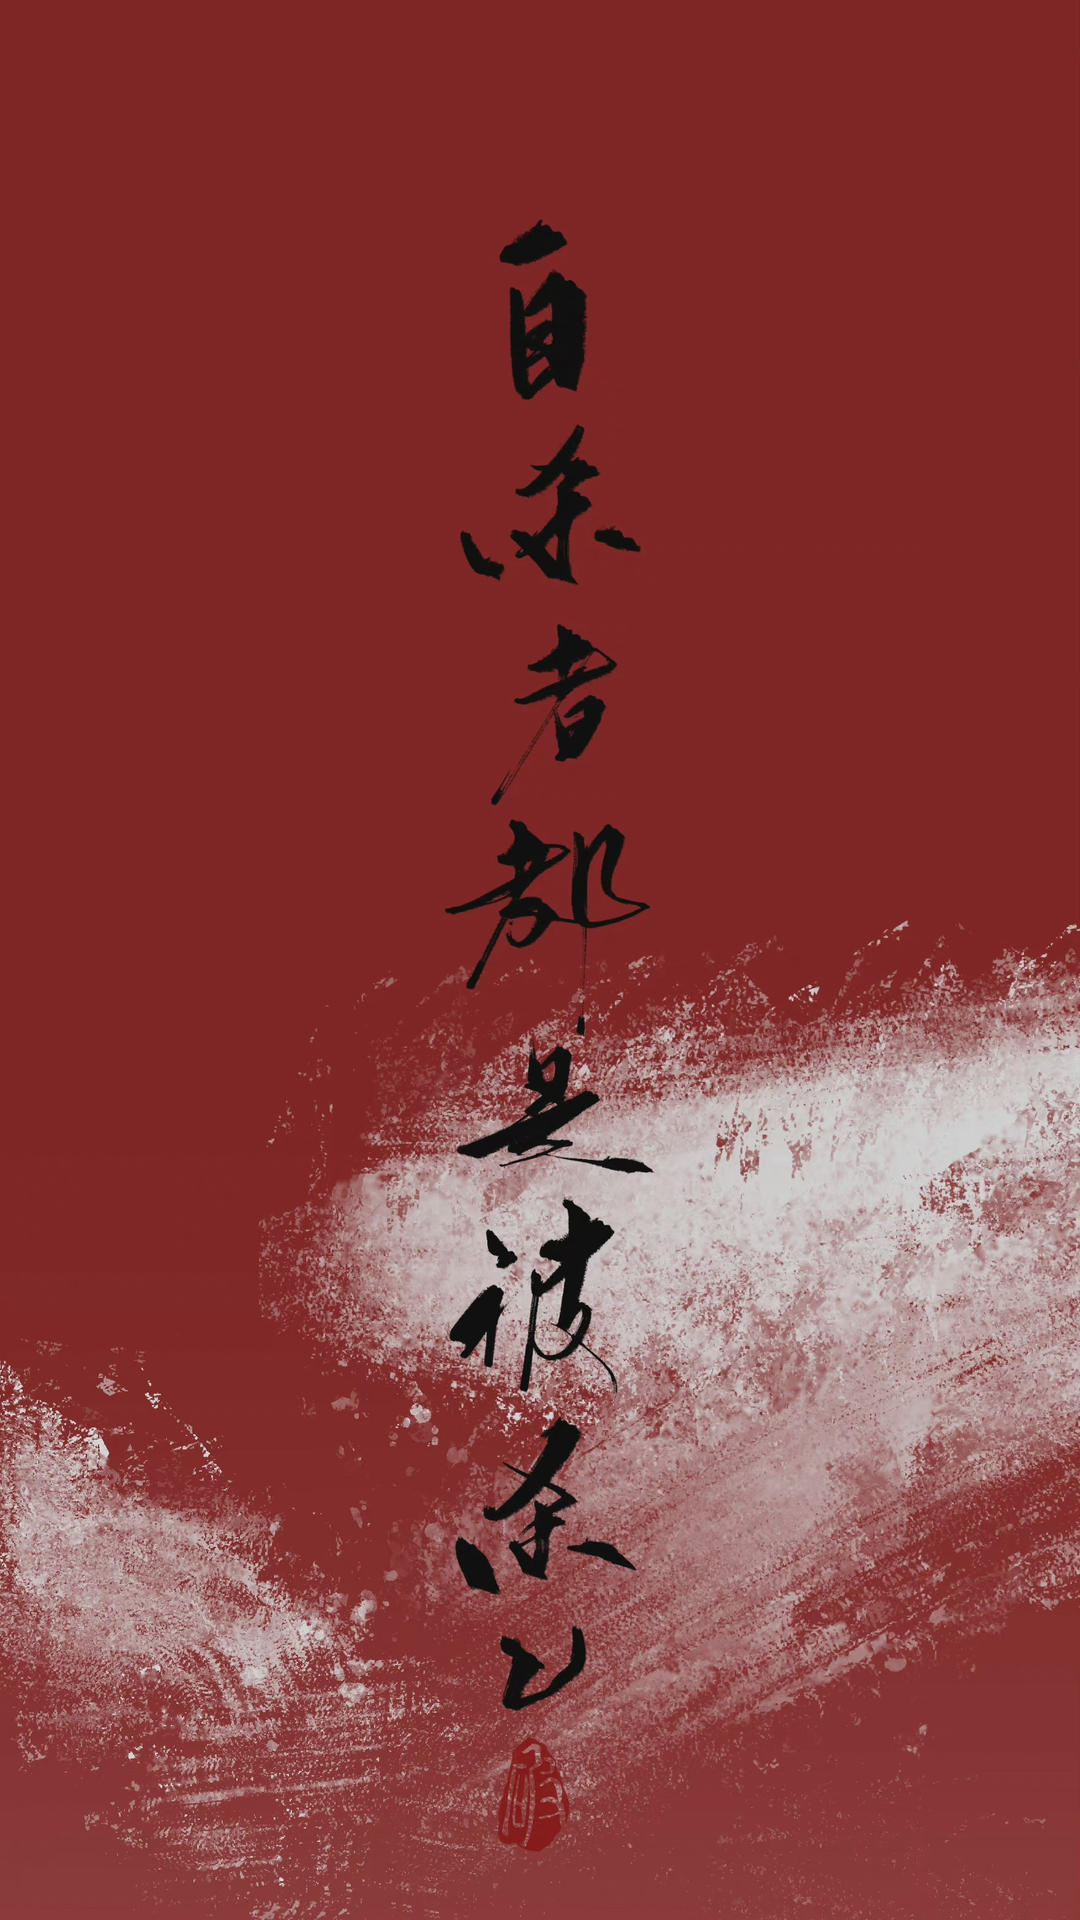 自杀者都是被杀亡